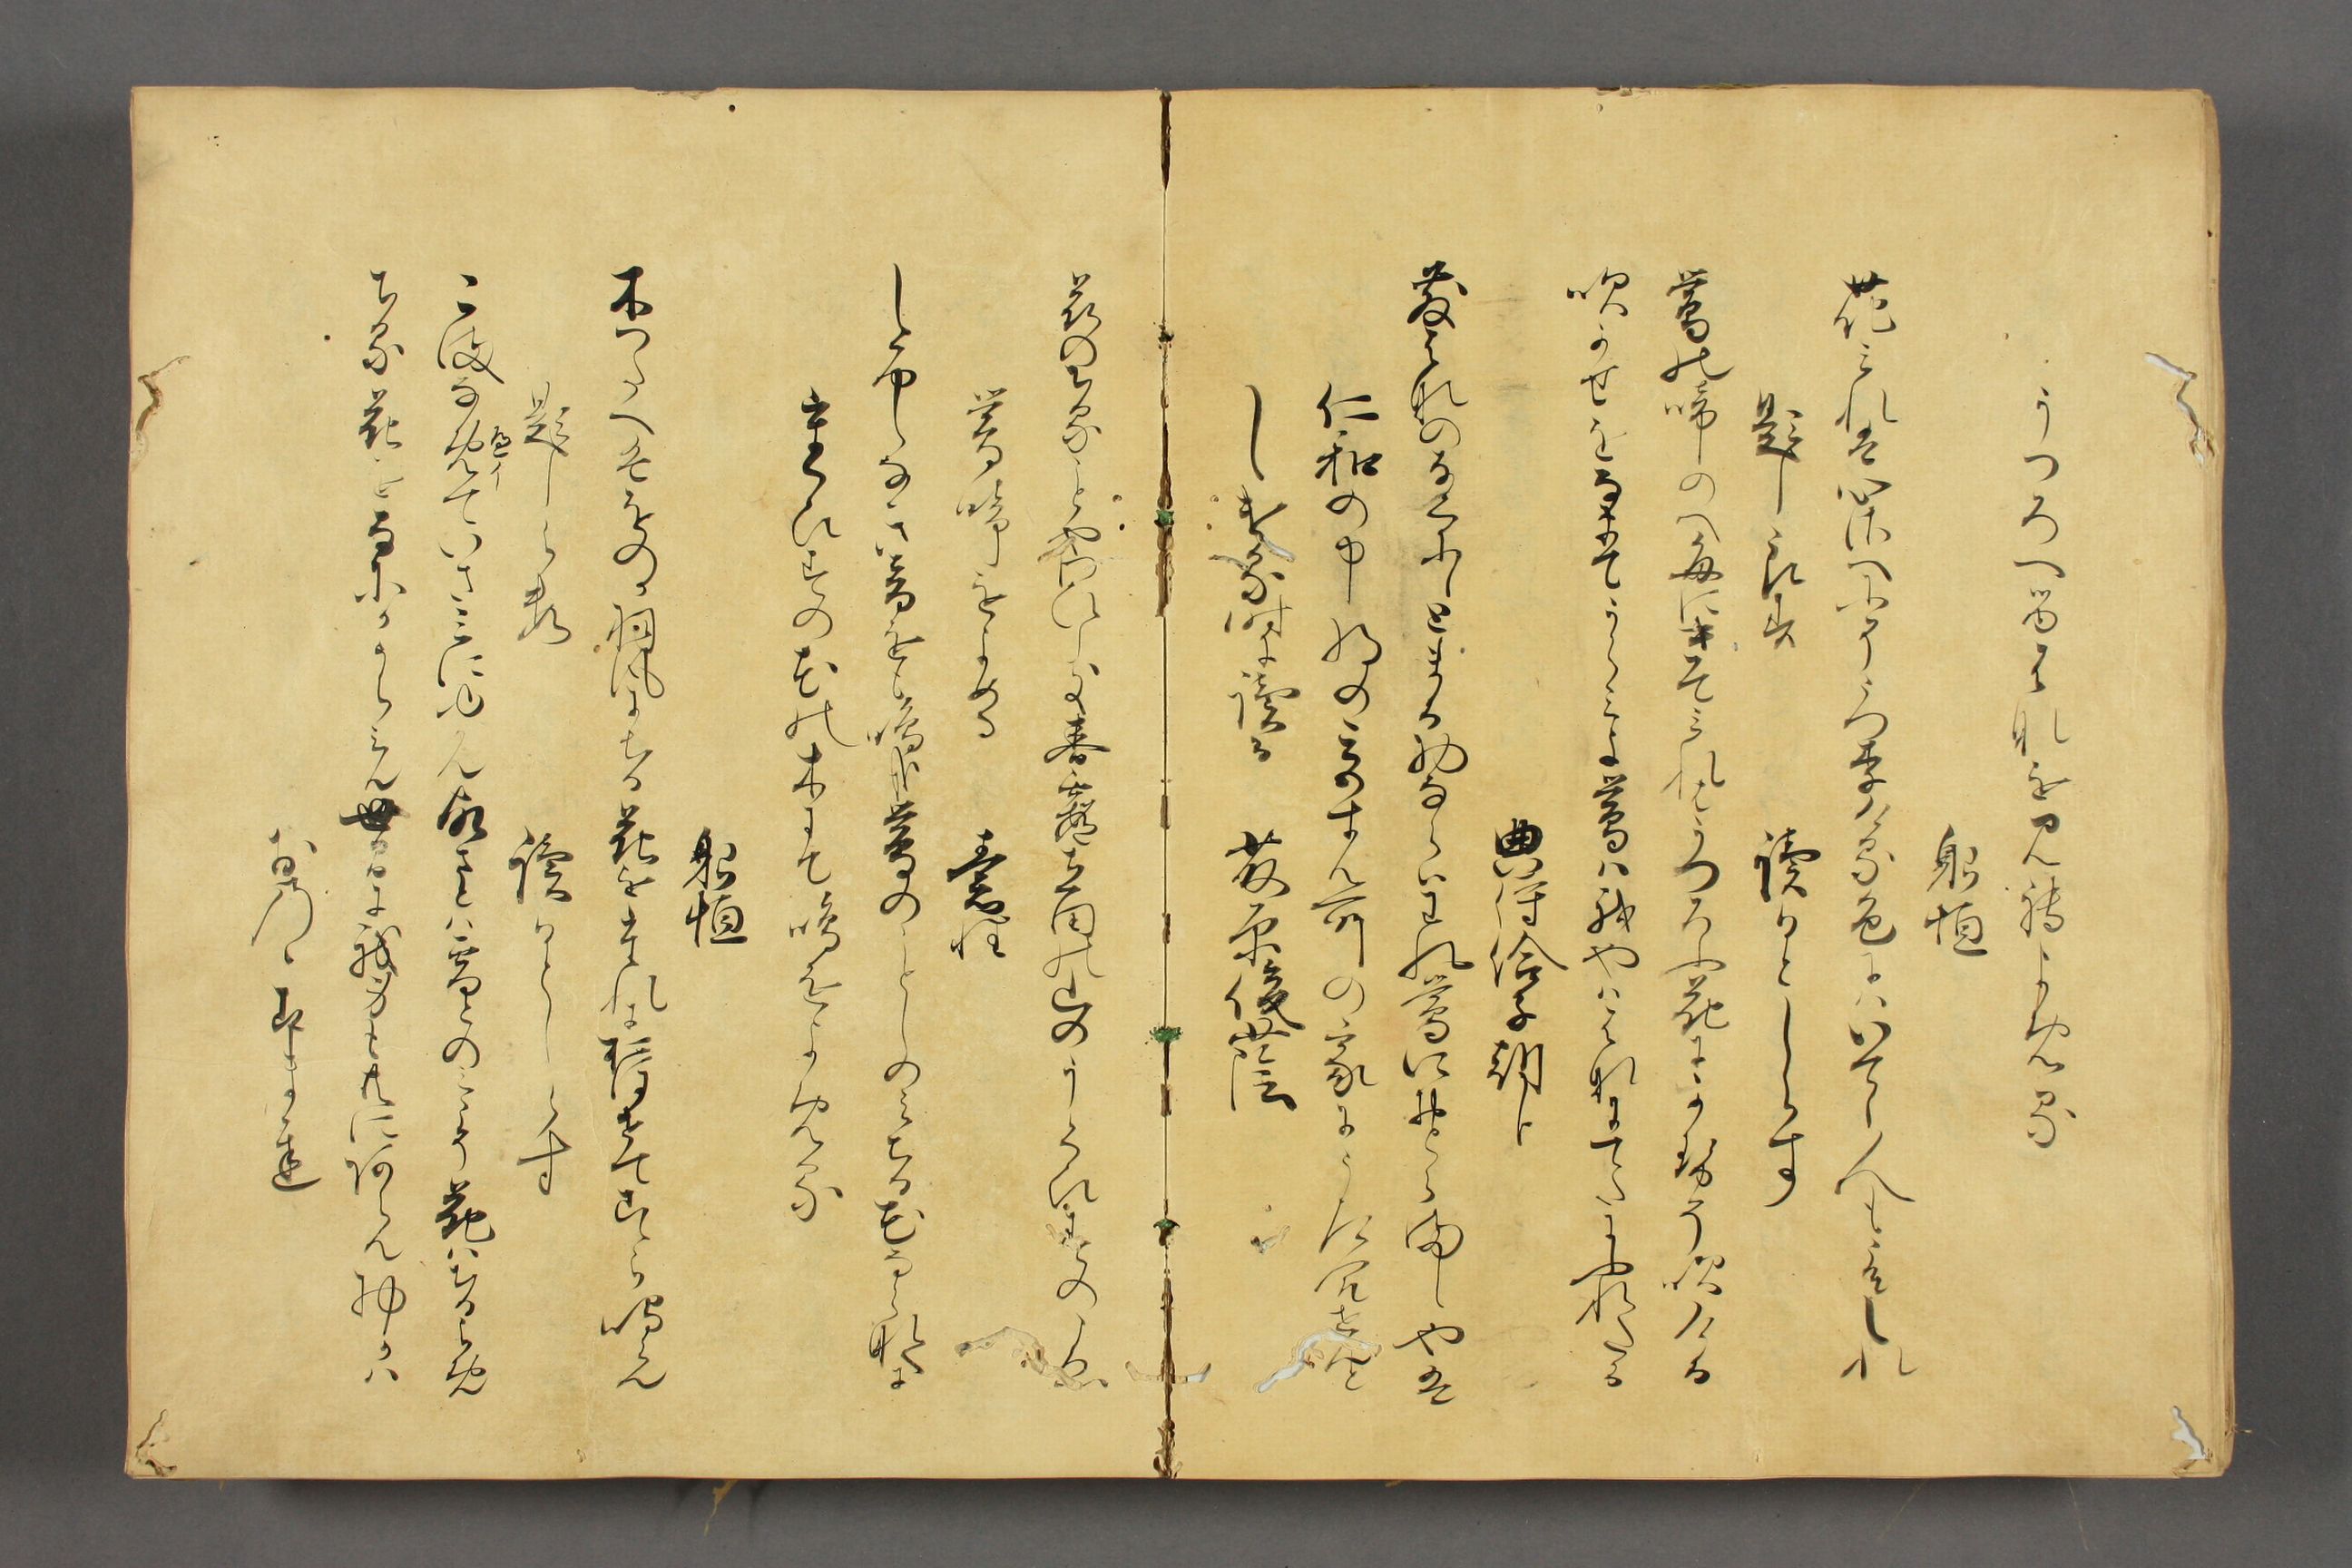 うつろへる花を見てよめる
躬恒
花みれは心さへにそうつりける色にはいてし人もこそしれ
題しらす　読人しらす
鶯の啼のへ毎にきてみれはうつろふ花にかせそ吹ける
吹かせをなきてうらみよ鶯は我やはゝなにてたにふれたる
典侍洽子朝臣
散はなのなくにしとまる物ならはわれ鶯におとらましやは
仁和の中将の
しける時に読る　藤原後蔭
花のちることやわひしき春霞たつたの山のうくひすのこゑ
鶯の啼をよめる　素性
しるしなきねをも鳴かな鶯のことしのみちる花ならなくに
うくひすの花の木にて鳴をよめる
躬恒
木つたへはをのか羽風にちる花をたれにおほせてこゝら鳴らん
題しらす　読人しらす
こまなめていさみにゆかん故さとは雪とのみこそ花はちるらめ
ちる花をなにかうらみん世中に我身もともにあらん物かは
おのゝこまち